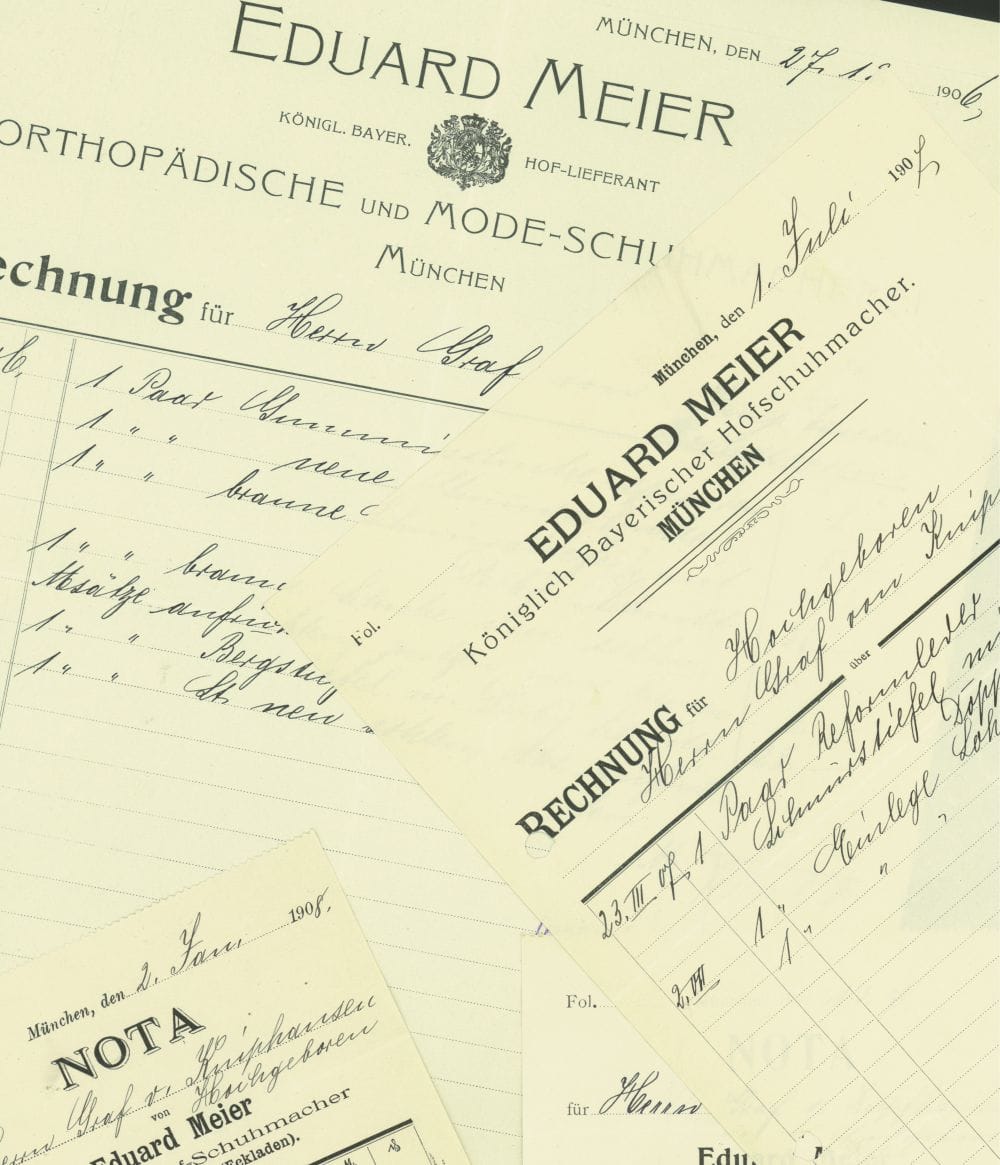 MÜNCHEN, DEN 27. 1. 1906
EDUARD MEIER
KÖNIGL. BAYER. HOF-LIEFERANT
ORTHOPÄDISCHE UND MODE-SCHU
MÜNCHEN
echnung für Herrn Graf
1 Paar Gummi
1 " " neue
1 " " braune
1 " " braun
Absätze
1 " " Bergst
1 " " St. neu
München, den 1. Juli 1907
EDUARD MEIER
Königlich Bayerischer Hofschuhmacher.
MÜNCHEN
Fol.
RECHNUNG für Hochgeboren
Herrn Graf von Knip
über
23. III 07. 1 Paar Reformleder
Schnürstiefel
Dopp
1 " Einlege Soh
2. VII 1 " "
München, den 2. Jan. 1908.
NOTA
Graf v. Kniphausen
von Hochgeboren
Eduard Meier
f-Schuhmacher
Eckladen).
Fol.
NOTA
für Herrn
Edu